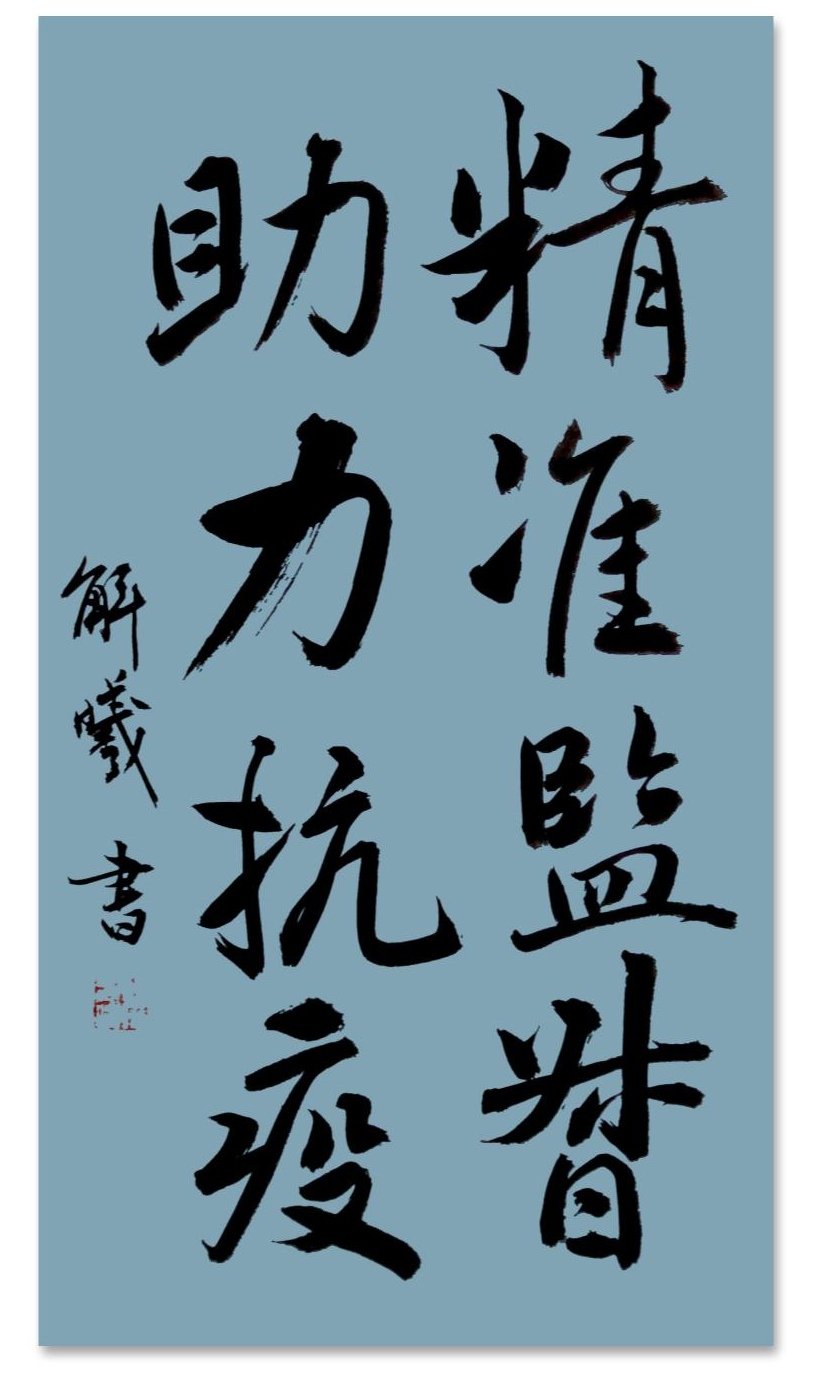 精准監督
助力抗疫
解曦書